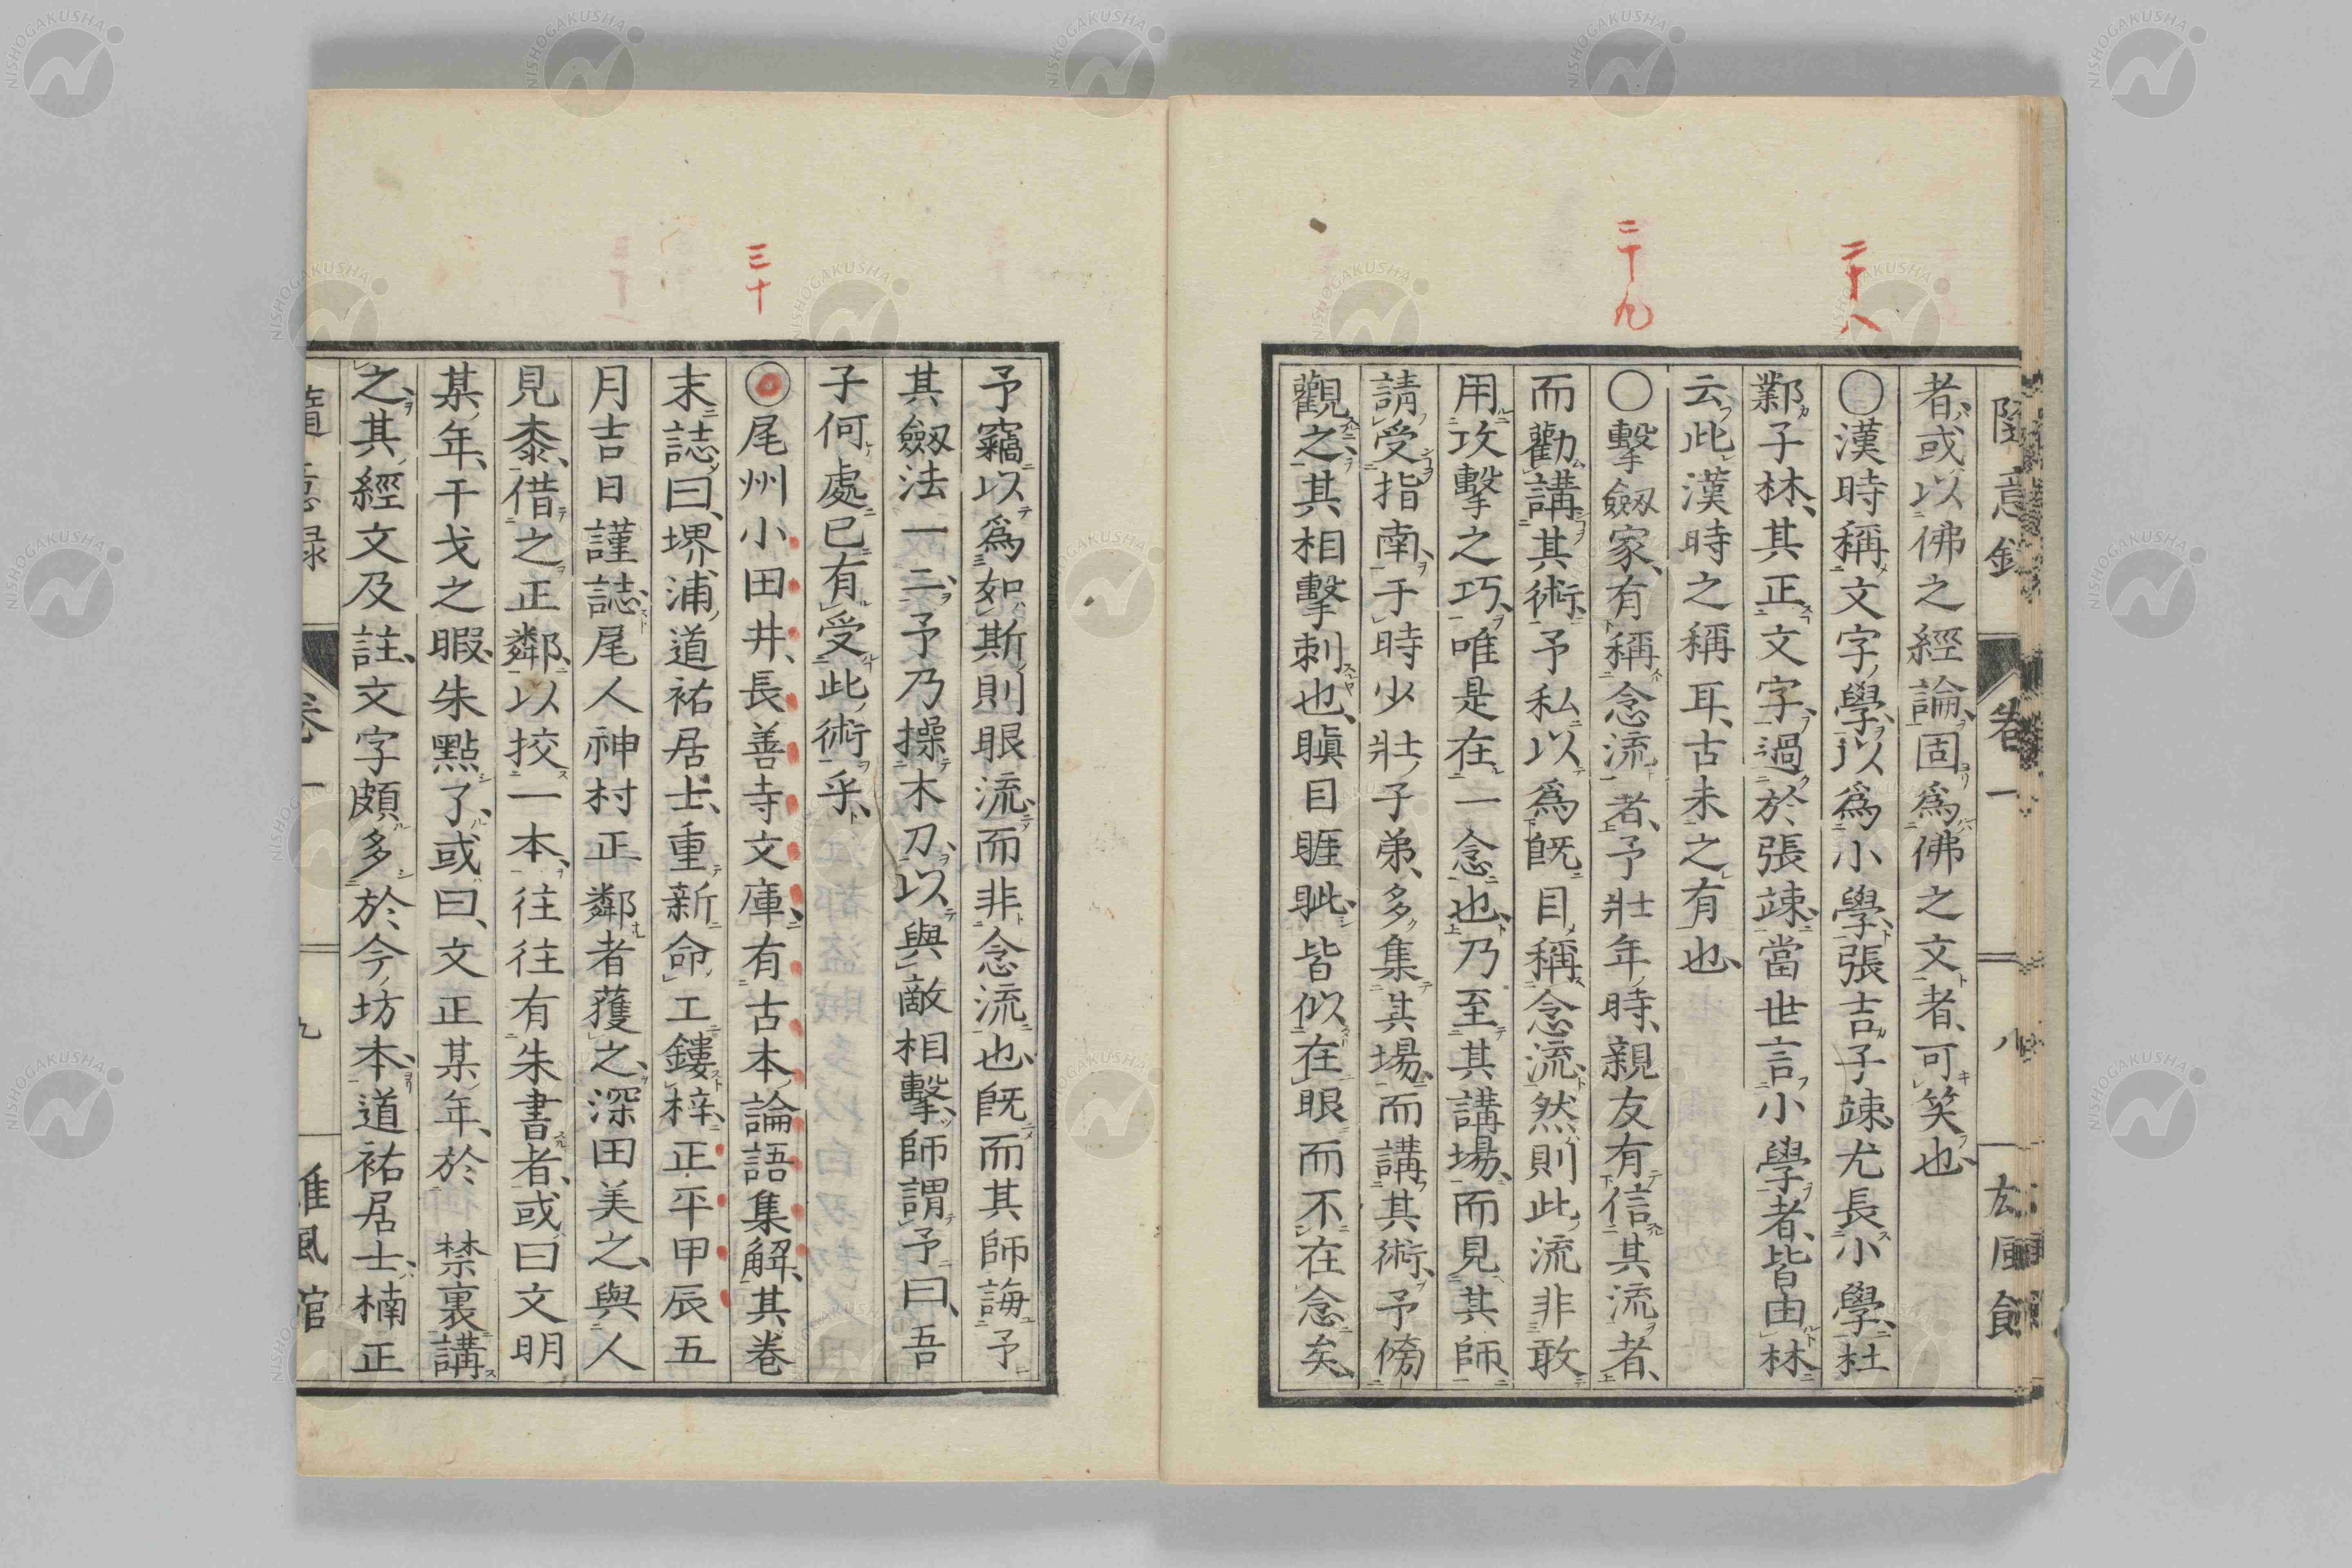 二十八
二十九
隨意録 卷一 八
者或以佛之經論固爲佛之文者可笑也
○漢時稱文字學以爲小學張吉子竦尤長小學杜
鄴子林其正文字過於張竦當世言小學者皆由林
云此漢時之稱耳古未之有也
○擊劔家有稱念流者予壯年時親友有信其流者
而勸講其術予私以爲旣目稱念流然則此流非敢
用攻擊之巧唯是在一念也乃至其講場而見其師
請受指南于時少壯子弟多集其場而講其術予傍
觀之其相擊刺也瞋目睚眦皆似在眼而不在念矣
三十
予竊以爲如斯則眼流而非念流也旣而其師誨予
其劔法一二予乃操木刀以與敵相擊師謂予曰吾
子何處已有受此術乎
○尾州小田井長善寺文庫有古本論語集解其卷
末誌曰堺浦道祐居士重新命工鏤梓正平甲辰五
月吉日謹誌尾人神村正鄰者獲之深田美之與人
見桼借之正鄰以挍一本往往有朱書者或曰文明
某年干戈之暇朱點了或曰文正某年於 禁裏講
之其經文及註文字頗多於今坊本道祐居士楠正
卷一 九
NISHOGAKUSHA